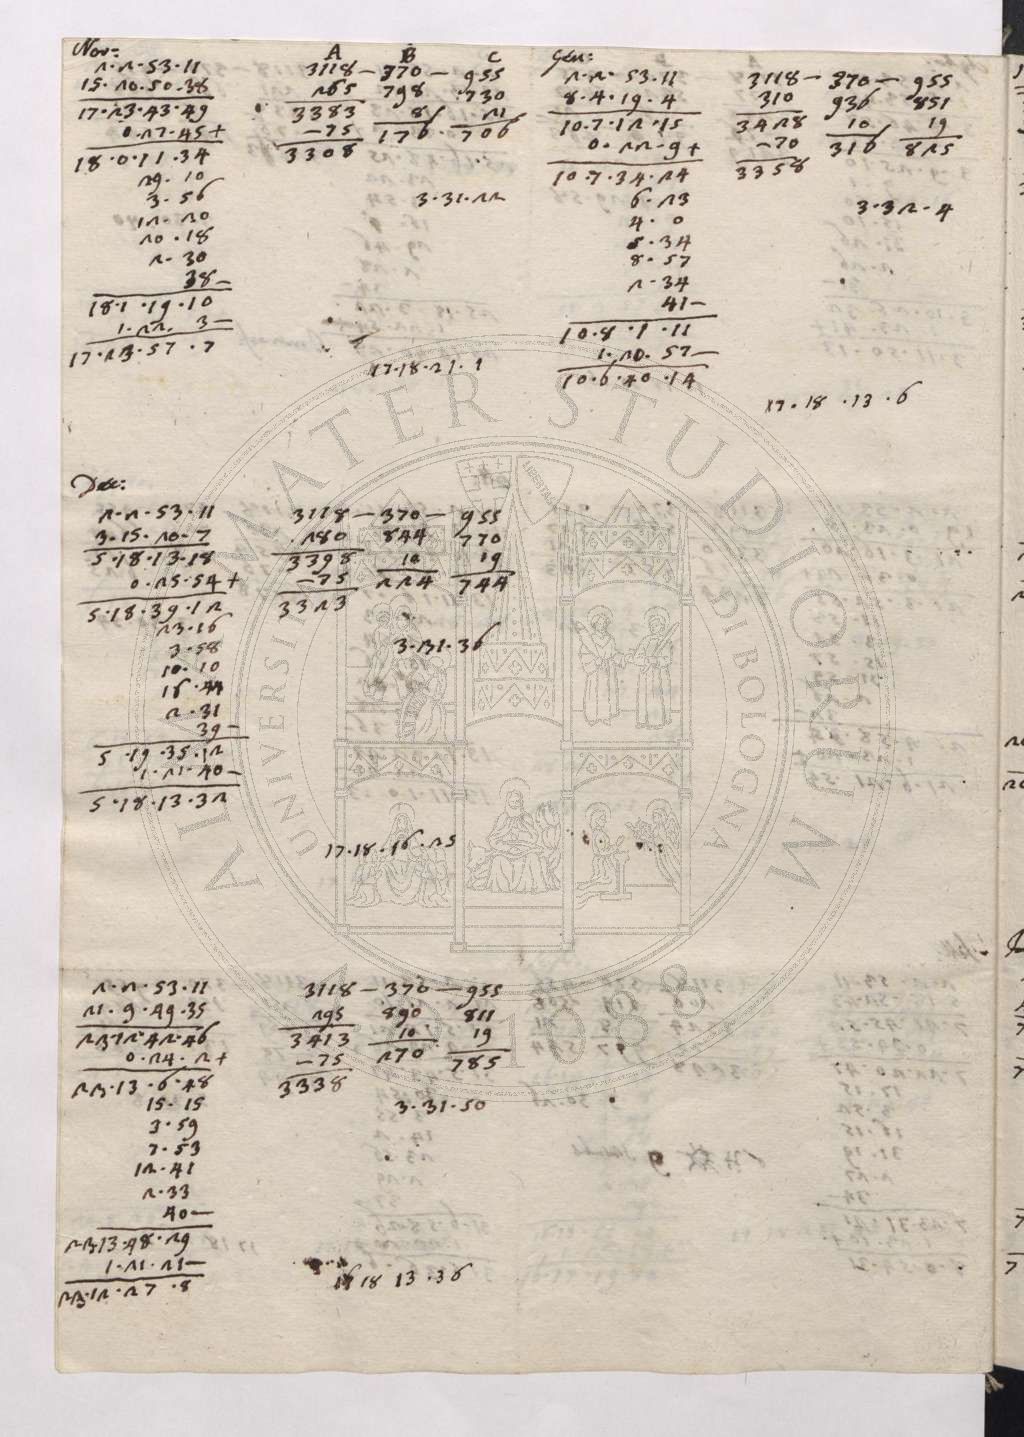 Nov:
A B C
2.2.53.11 3118 — 370 — 955
15.20.50.38 265 798 730
17.23.43.49 3383 8 21
0.27.45+ —75 176 706
18.0.11.34 3308
29.10
3.56 3.31.22
12.20
20.18
2.30
38—
18.1.19.10
1.22.3—
17.23.57.7
17.18.21.1
Gen:
2.2.53.11 3118 — 370 — 955
8.4.19.4 310 936 851
10.7.12.15 3428 10 19
0.22.9+ —70 316 825
10.7.34.24 3358
6.23 3.32.4
4.0
5.34
8.57
2.34
41—
10.8.1.11
1.20.57—
10.6.40.14
17.18.13.6
Dec:
2.2.53.11 3118 — 370 — 955
3.15.20.7 280 844 770
5.18.13.18 3398 10 19
0.25.54+ —75 224 744
5.18.39.12 3323
23.16
3.58 3.31.36
10.10
16.44
2.31
39—
5.19.35.12
1.21.40—
5.18.13.32
17.18.16.25
2.2.53.11 3118 — 370 — 955
21.9.49.35 295 890 811
23.12.42.46 3413 10 19
0.24.2+ —75 270 785
23.13.6.48 3338
15.15 3.31.50
3.59
7.53
12.41
2.33
40—
23.13.48.29
1.21.21—
23.12.27.8
16 18 13.36
ALMA MATER STUDIORUM
UNIVERSITÀ DI BOLOGNA
LIBERTAS
A.D. 1088